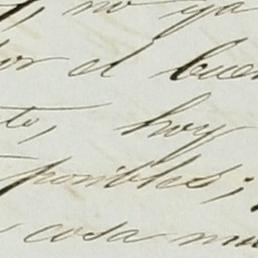 , no ya
or el buen
to, hoy
posibles;
cosa mu